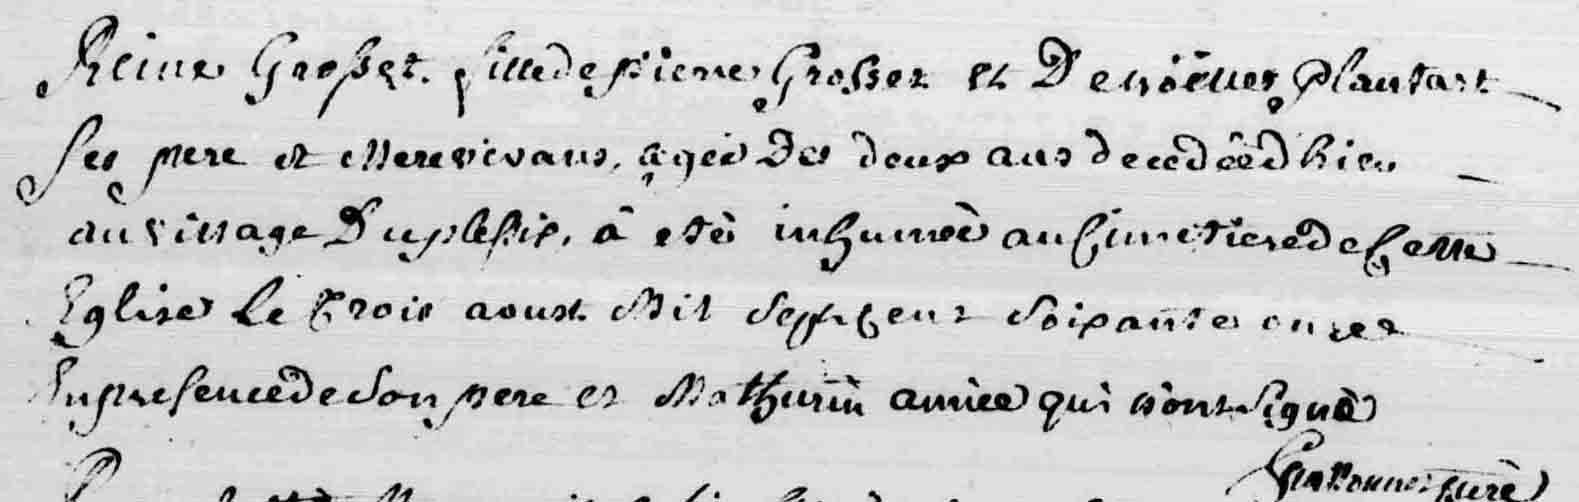 Reine Grosset. fille de pierre Grosset et De noëlle plantart
Ses pere et Mere vivans, agée de deux ans decedéé d hier
au village Duplessix, â etê inhumèe au Cimetiere de Cette
Eglise Le trois aoust Mil Sept Cent Soixante onze
En presence de Son pere et Mathurin amice qui n'ont Signè